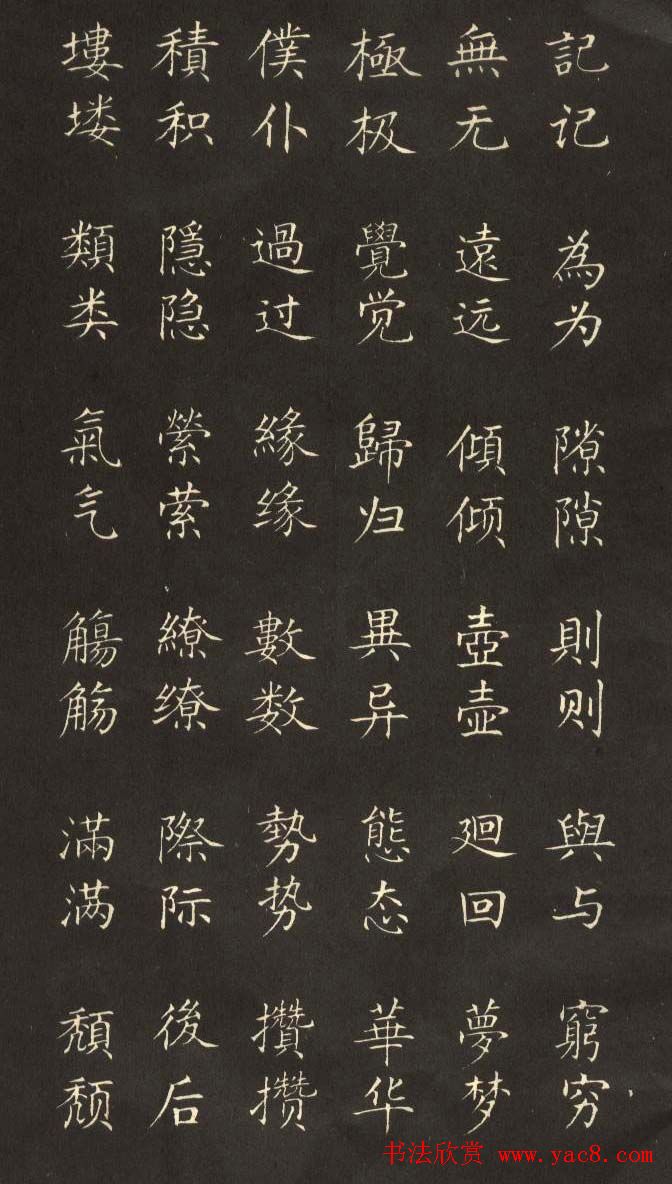 記记 為为 隙隙 則则 與与 窮穷
無无 遠远 傾倾 壺壶 廻回 夢梦
極极 覺觉 歸归 異异 態态 華华
僕仆 過过 緣缘 數数 勢势 攢攒
積积 隱隐 縈萦 繚缭 際际 後后
塿塿 類类 氣气 觴觞 滿满 頹颓
书法欣赏 www.yac8.com